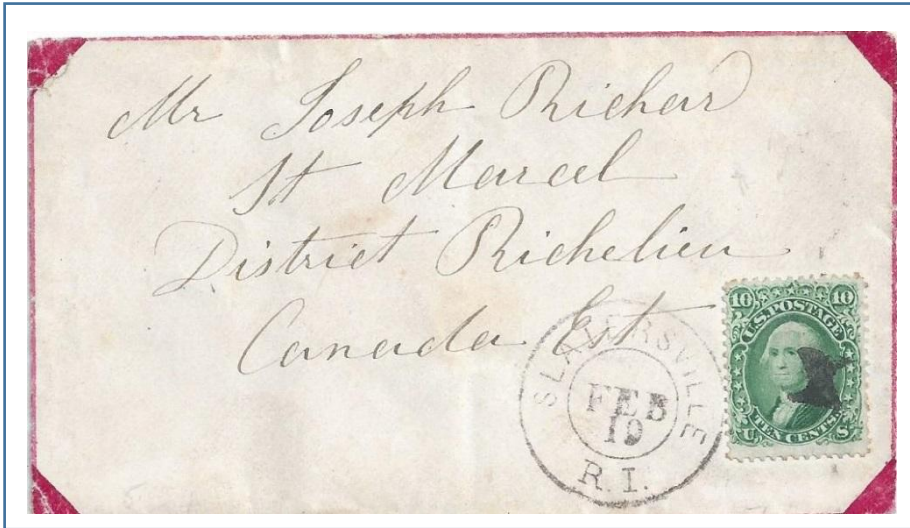 Mr Joseph Richard
St Marcel
District Richelieu
Canada Est
SLATERSVILLE
FEB
19
R. I.
10 10
U.S. POSTAGE
TEN CENTS.
U S